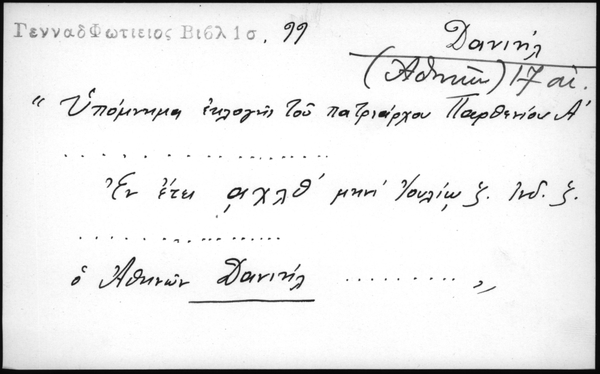 ΓενναδΦωτιειος Βιβλ 1σ. 99
Δανιήλ
(Ἀθηνῶν) 17 αἰ.
“ Ὑπόμνημα ἐκλογῆς τοῦ πατριάρχου Παρθενίου Α'
. . . . . . . . . . . . . . . . . . .
Ἐν ἔτει ͵αχλθ' μηνὶ Ἰουλίῳ ξ. Ἰνδ. ξ.
. . . . . . . . . . . . . . . . . . .
ὁ Ἀθηνῶν Δανιήλ . . . . . . . . . „